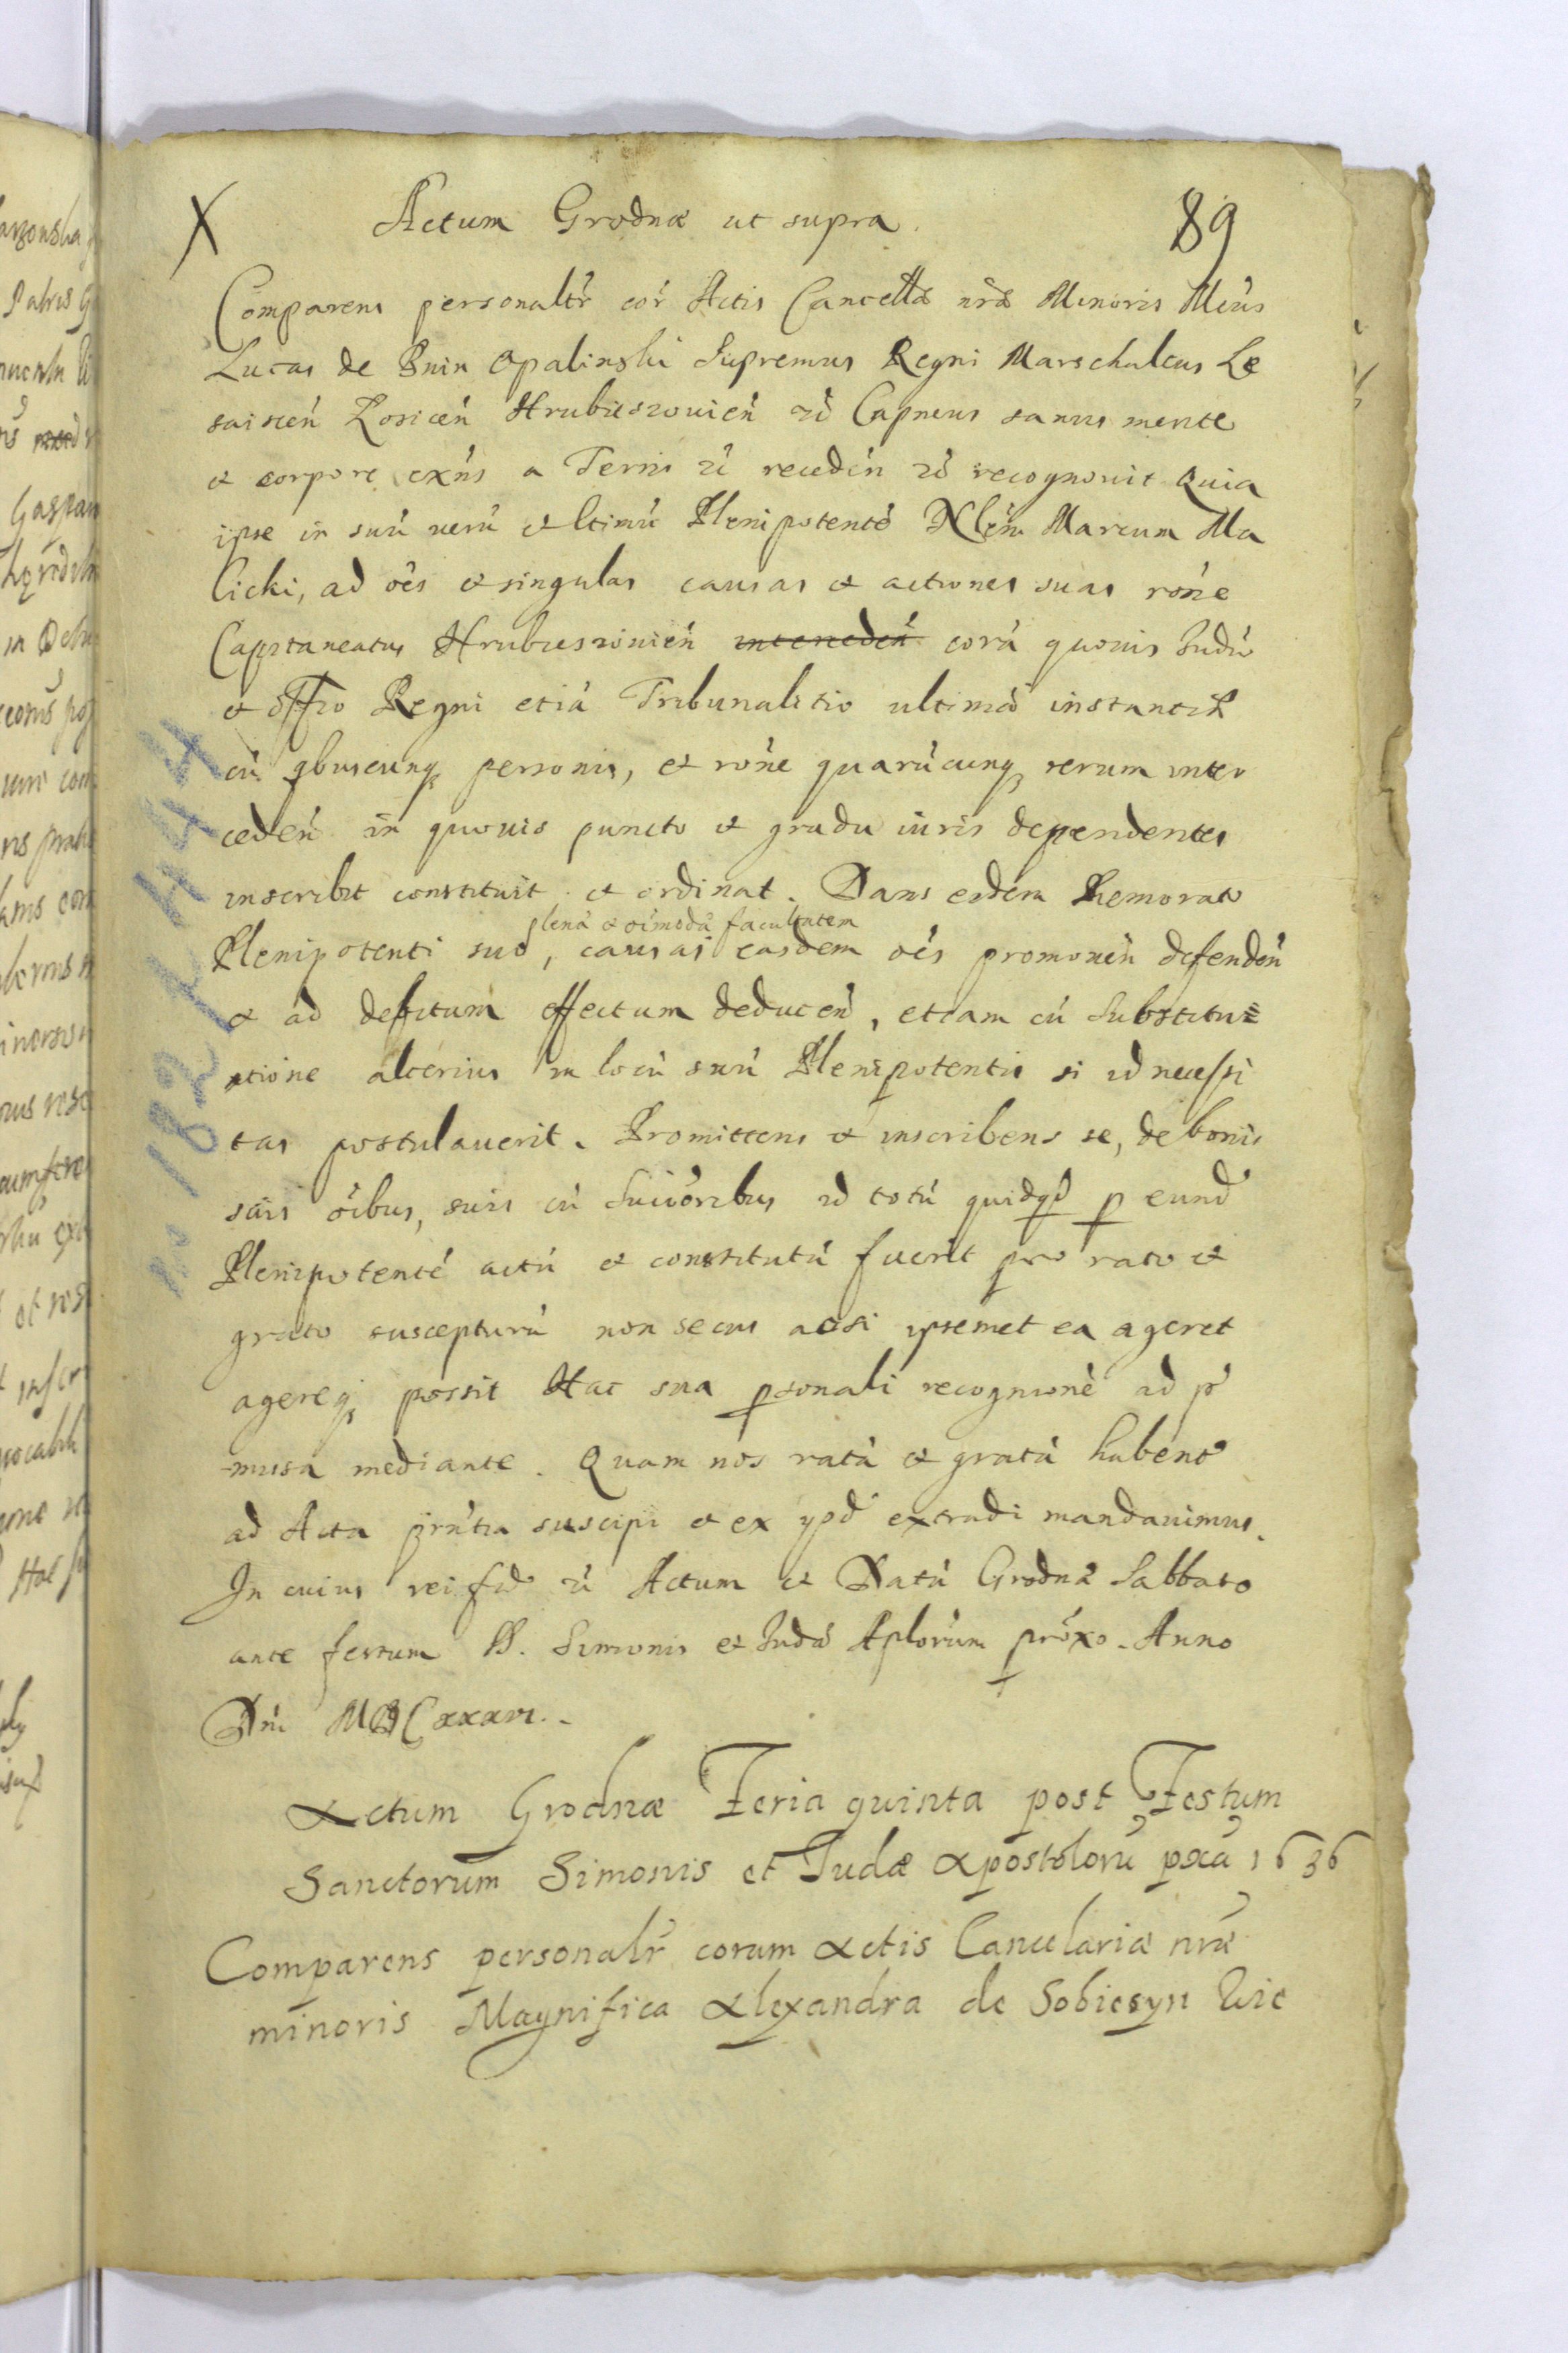 X Actum Grodnæ ut supra. 89
Comparens personalr cor Actis Cancellæ nræ Minoris Mcus
Lucas de Bnin Opalinski Supremus Regni Marschalcus Le
saiscen Losicen Hrubieszouien Capneus sanus mente
et corpore exns a Terris recedén recognouit Quia
ipse in suú uerú et ltimú Plenipotenté Nlem Marcum Ma
licki, ad oés et singulas causas et actiones suas roné
Capitaneatus Hrubieszouien intercedén corá quouis Judú
et offio Regni etiá Tribunalitio ultimæ instantiæ
cú qbuscunq personis, et roné quarúcunq rerum inter
cedeń in quouis puncto et gradu iuris dependentes
inscribit constituit et ordinat. Dans eidem Memorato
plená et oímodá facultatem
Plenipotenti suo, causas easdem oés promouén defendén
et ad debitum effectum deducen, etiam cú Substitu
tione alterius in locú suú Plenipotentis si id necessi
tas postulauerit. Promittens et inscribens se, de bonis
suis oíbus, suis cú Succoribus id totú quidqd p eund
Plenipotenté actú et constitutú fuerit pro rato et
grato suscepturú non secus acsi ipsemet ea ageret
agereq possit Hac sua psonali recognioné ad p
missa mediante. Quam nos ratá et gratá habent
ad Acta prntia suscipi et ex ypd extradi mandauimus.
In cuius rei fid Actum et Datú Grodnæ Sabbato
ante festum SS. Simonis et Judæ Aplorum próxo. Anno
Dni MDCxxxvi.
Actum Grodnæ Feria quinta post Festum
Sanctorum Simonis et Judæ Apostoloru pxa 1636
Comparens personalr coram Actis Cancelariæ nræ
minoris Magnifica Alexandra de Sobiesyn Wie